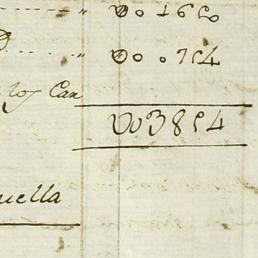 " 001692
" 000754
los Can
003854
uella